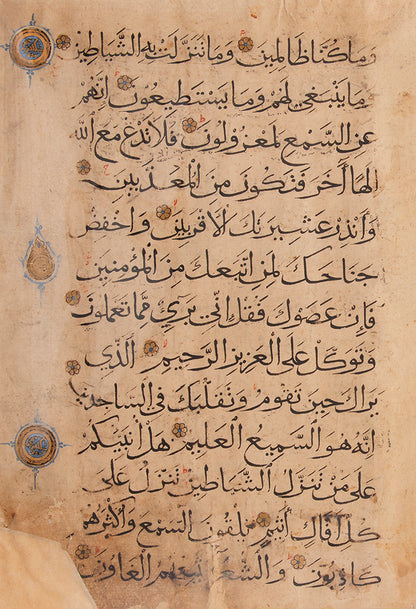 وما كنا ظالمين وما تنزلت به الشياطين
وما ينبغي لهم وما يستطيعون إنهم
عن السمع لمعزولون فلا تدع مع الله
إلها آخر فتكون من المعذبين
وأنذر عشيرتك الأقربين واخفض
جناحك لمن اتبعك من المؤمنين
فإن عصوك فقل إني بريء مما تعملون
وتوكل على العزيز الرحيم الذي
يراك حين تقوم وتقلبك في الساجدين
إنه هو السميع العليم هل أنبئكم
على من تنزل الشياطين تنزل على
كل أفاك أثيم يلقون السمع وأكثرهم
كاذبون والشعراء يتبعهم الغاوون